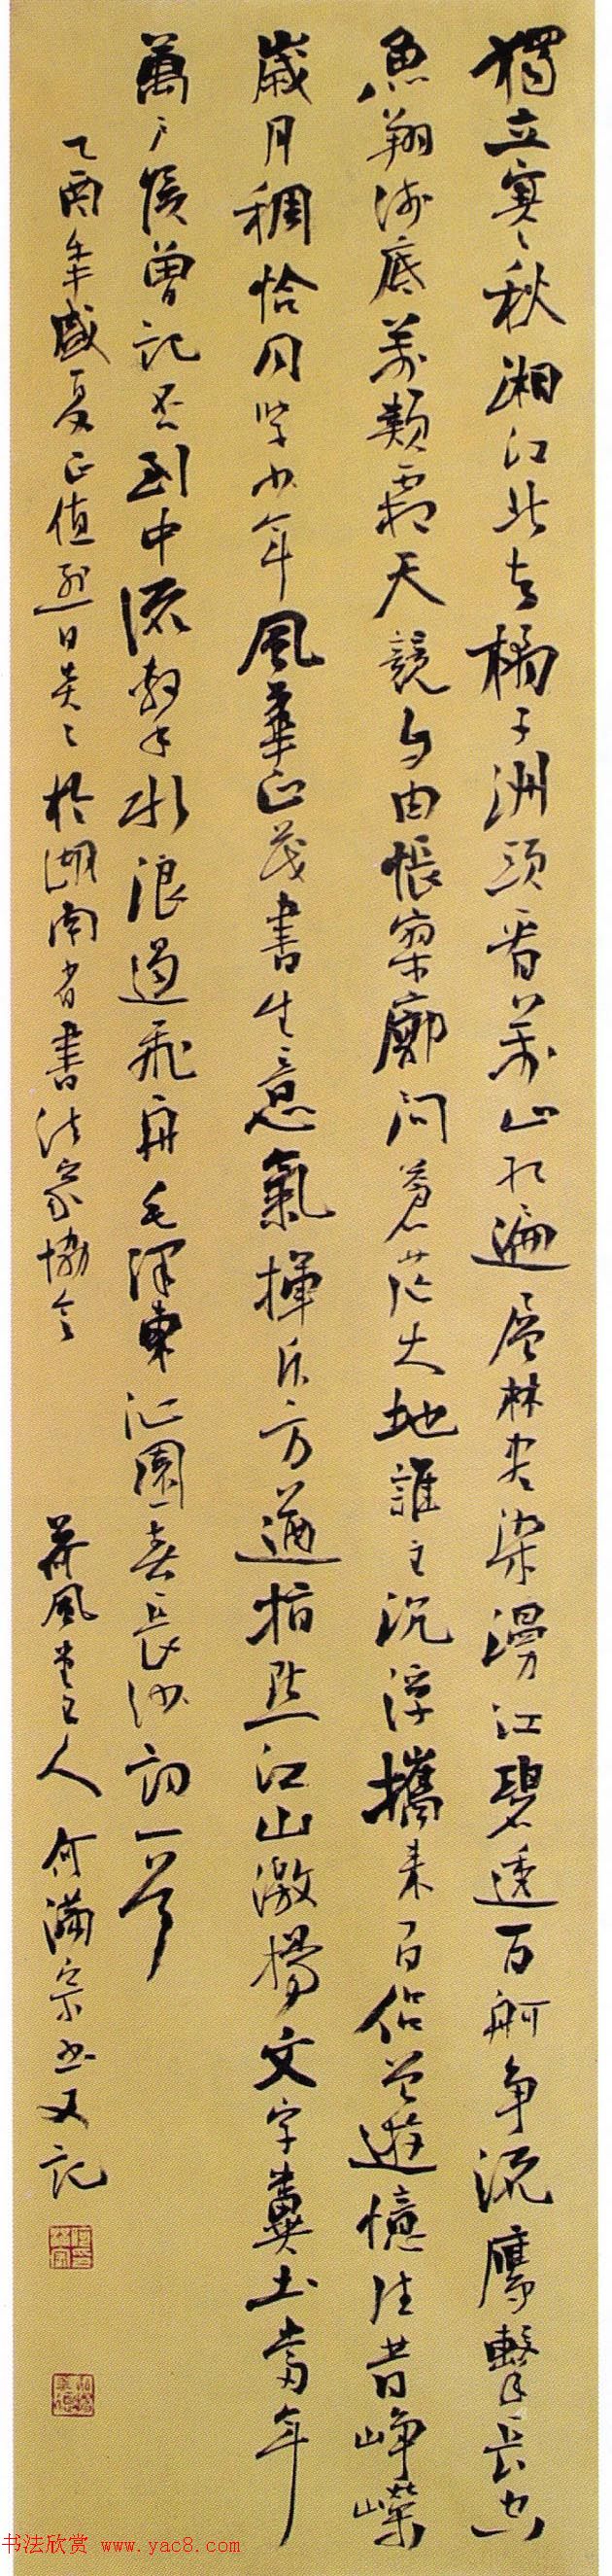 獨立寒秋湘江北去橘子洲頭看萬山紅遍層林盡染漫江碧透百舸争流鷹擊長空
魚翔淺底萬類霜天競自由悵寥廓問蒼茫大地誰主沉浮攜来百侣曾遊憶往昔崢嶸
歲月稠恰同學少年風華正茂書生意氣揮斥方遒指點江山激揚文字糞土當年
萬户侯曾記否到中流擊水浪遏飛舟毛澤東沁園春長沙詞一首
乙酉年盛夏正值烈日炎〻於湖南省書法家協會 荷風堂主人 何滿宗書又記
书法欣赏 www.yac8.com